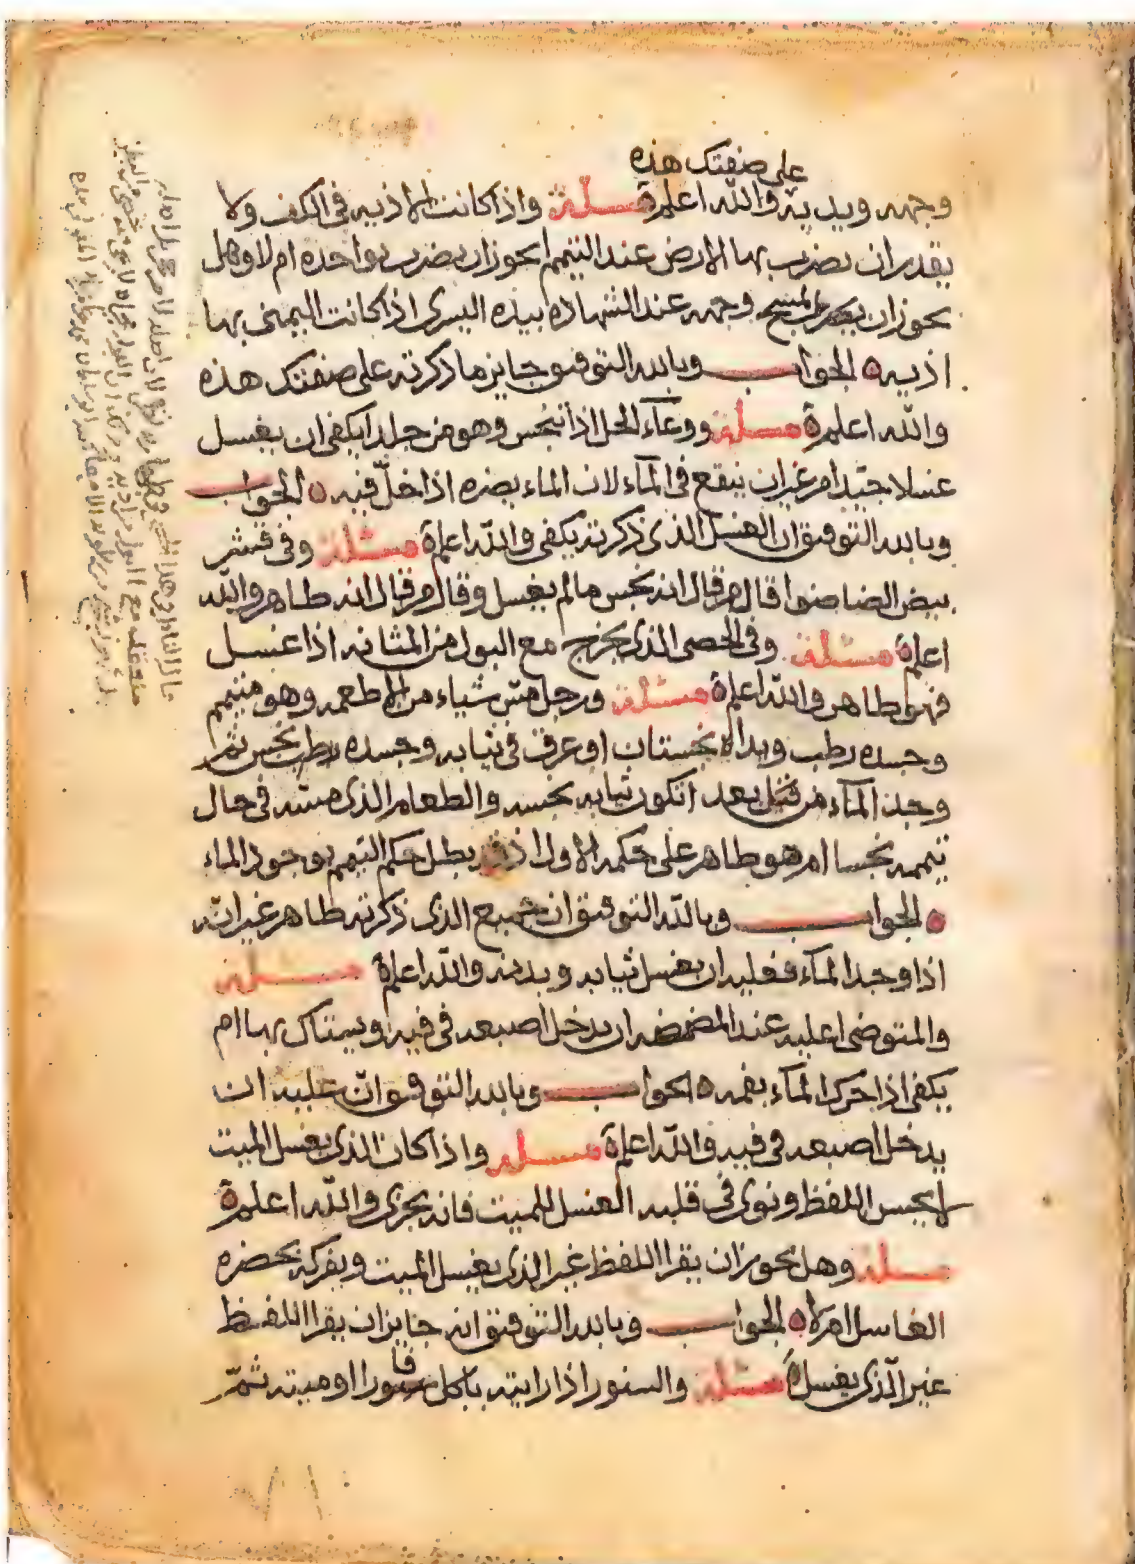 على صفتك هذه
وجهه ويديه والله اعلم ه مسلة واذا كانت الاذيه في الكف ولا
يقدر ان يضرب بها الارض عند التيمم ايجوز ان يضرب بواحده ام لا وهل
يجوز ان يمسح وجهه عند الشهاده بيده اليسرى اذا كانت اليمنى بها
اذيه ه الجواب وبالله التوفيق جايز ما ذكرته على صفتك هذه
والله اعلم ه مسلة ووعآء الخل اذا نجس وهو من جلد ايكفي ان يغسل
غسلا جيّدا من غير ان ينقع في المآء لان الماء يضره اذا خلّ فيه ه الجواب
وبالله التوفيق ان الغسل الذي ذكرته يكفي والله اعلم ه مسئلة وفي قشر
بيض الضاضوا قال من قال انه نجس ما لم يغسل وقال من قال انه طاهر والله
اعلم ه مسئلة وفي الحصى الذي يخرج مع البول من المثانه اذا غسل
فهو طاهر والله اعلم ه مسئلة ورجل مسّ شياء من الاطعمه وهو متيمم
وجسده رطب ويداه نجستان او عرق في ثيابه وجسده رطب نجس ثم
وجد المآء من بعد اتكون ثيابه نجسه والطعام الذي مسّه في حال
تيممه نجسا ام هو طاهر على حكمه الاول اذ بطل حكم التيمم بوجود الماء
ه الجواب وبالله التوفيق ان جميع الذي ذكرته طاهر غير انّه
اذا وجد المآء فعليه ان يغسل ثيابه وبدنه والله اعلم ه مسلة
والمتوضى اعليه عند المضمضه ان يدخل اصبعه في فيه ويستاك بها ام
يكفي اذا حرك المآء بفمه ه الجواب وبالله التوفيق انّ عليه ان
يدخل اصبعه في فيه والله اعلم ه مسلة واذا كان الذي يغسل الميت
لا يحسن اللفظ ونوى في قلبه الغسل للميت فانه يجزي والله اعلم ه
مسلة وهل يجوز ان يقرا اللفظ غير الذي يغسل الميت ويفركه بحضره
الغاسل ام لا ه الجواب وبالله التوفيق انه جايز ان يقرا اللفظ
غير الذي يغسل ه مسئلة والسنور اذا رايته ياكل فارا او ميته ثمّ